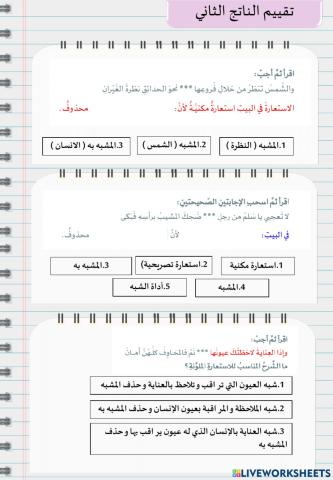 تقييم الناتج الثاني
اقرأ ثمَّ أجبْ:
والشَّمسُ تنظرُ من خلالِ فُروعِها *** نحوَ الحدائقِ نظرةَ الغَيْرانِ
الاستعارةُ في البيت استعارةٌ مكنيّةٌ لأنّ: محذوفٌ.
1.المشبه ( النظرة )
2.المشبه ( الشمس )
3.المشبه به ( الانسان )
اقرأ ثمَّ اسحبِ الإجابتينِ الصّحيحتينِ:
لا تَعجبي يا سَلمُ من رجلٍ *** ضَحِكَ المشيبُ برأسِهِ فبَكى
في البيتِ: لأنّ محذوفٌ.
1.استعارة مكنية
2.استعارة تصريحية)
3.المشبه به
4.المشبه
5.أداة الشبه
اقرأ ثمَّ أجبْ:
وإذا العنايةُ لاحظتْكَ عيونُها *** نَمْ فالمخاوفُ كلُّهنَّ أمانُ
ما الشّرحُ المناسبُ للاستعارةِ الملوّنةِ؟
1.شبه العيون التي تر اقب و تلاحظ بالعناية و حذف المشبه
2.شبه الملاحظة و المر اقبة بعيون الإنسان و حذف المشبه به
3.شبه العناية بالإنسان الذي له عيون ير اقب بها و حذف
المشبه به
LIVEWORKSHEETS